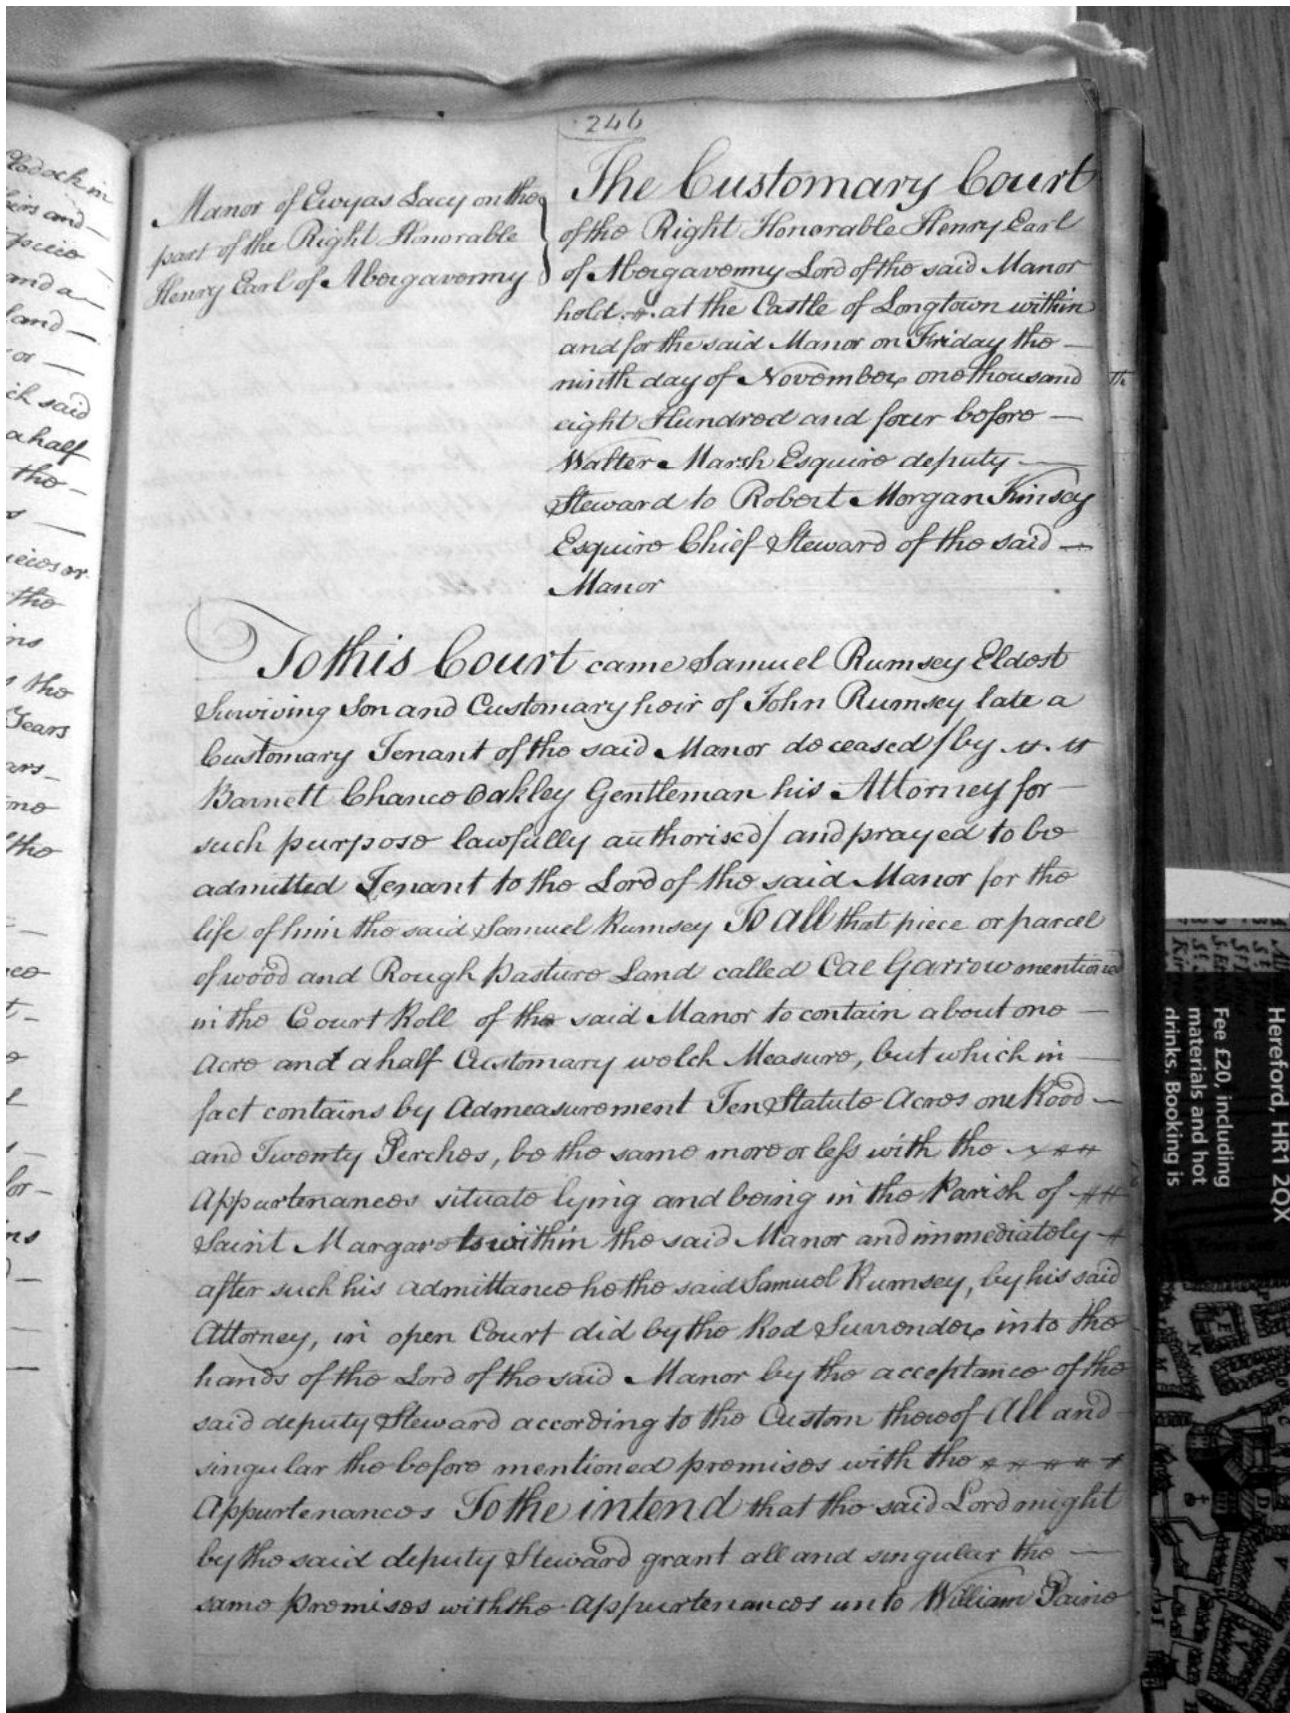 246
Manor of Ewyas Lacy on the
part of the Right Honorable
Henry Earl of Abergavenny
The Customary Court
of the Right Honorable Henry Earl
of Abergavenny Lord of the said Manor
held at the Castle of Longtown within
and for the said Manor on Friday the
ninth day of November one thousand
eight Hundred and four before
Walter Marsh Esquire deputy
Steward to Robert Morgan Kinsey
Esquire Chief Steward of the said
Manor
To this Court came Samuel Rumsey Eldest
Surviving Son and Customary heir of John Rumsey late a
Customary Tenant of the said Manor deceased / by
Barnett Chance Oakley Gentleman his Attorney for
such purpose lawfully authorised / and prayed to be
admitted Tenant to the Lord of the said Manor for the
life of him the said Samuel Rumsey To all that piece or parcel
of wood and Rough Pasture Land called Cae Garrow mentioned
in the Court Roll of the said Manor to contain about one
Acre and a half Customary welch Measure, but which in
fact contains by Admeasurement Ten Statute Acres one Rood
and Twenty Perches, be the same more or less with the
Appurtenances situate lying and being in the Parish of
Saint Margarets within the said Manor and immediately
after such his admittance he the said Samuel Rumsey, by his said
Attorney, in open Court did by the Rod Surrender into the
hands of the Lord of the said Manor by the acceptance of the
said deputy Steward according to the Custom thereof All and
singular the before mentioned premises with the
Appurtenances To the intend that the said Lord might
by the said deputy Steward grant all and singular the
same premises with the appurtenances unto William Paine
in
heirs and
piece
and a
land
or
ch said
a half
the
pieces or
the
ins
the
Years
the
Hereford, HR1 2QX
Fee £20, including
materials and hot
drinks. Booking is